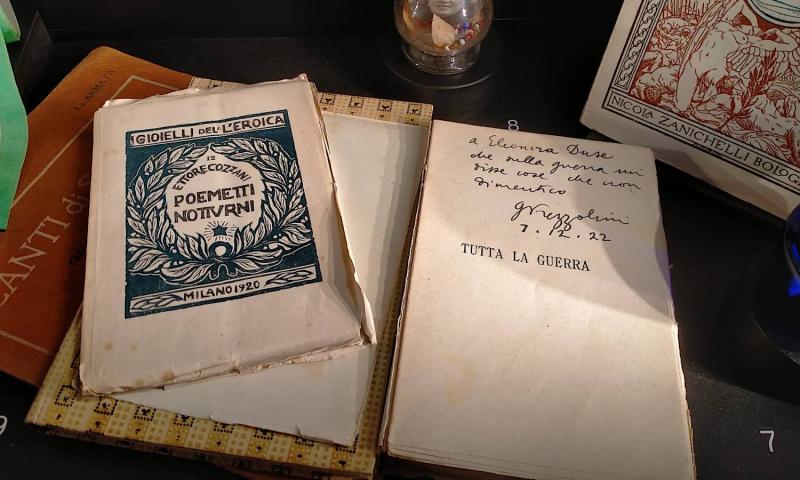 ARMATA
ANTI di
I GIOIELLI DEL·L'EROICA
12
ETTORE COZZANI
POEMETTI
NOTTVRNI
MILANO 1920
8
a Eleonora Duse
che sulla guerra mi
disse cose che non
dimentico
GPrezzolini
7.12.22
TUTTA LA GUERRA
NICOLA ZANICHELLI BOLOG
9
7